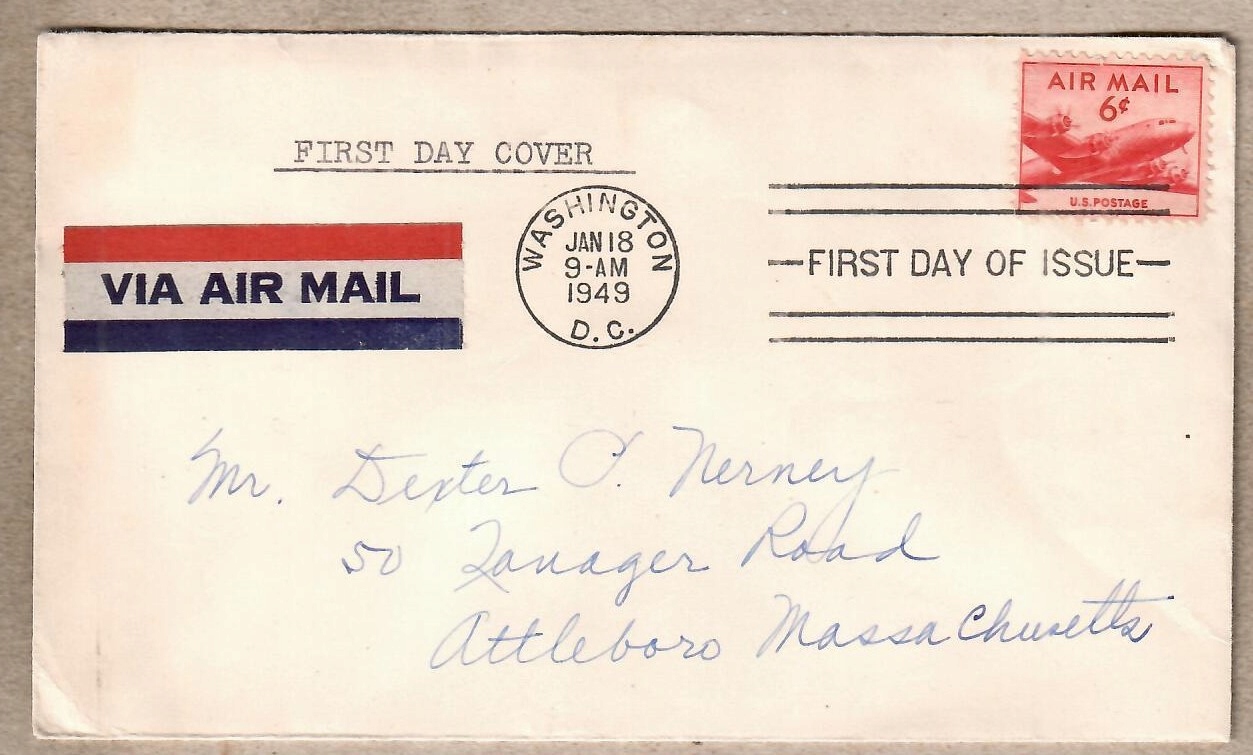 AIR MAIL
6¢
U.S. POSTAGE
FIRST DAY COVER
WASHINGTON
JAN 18
9-AM
1949
D.C.
FIRST DAY OF ISSUE
VIA AIR MAIL
Mr. Dexter C. Nerney
50 Tanager Road
Attleboro Massachusetts